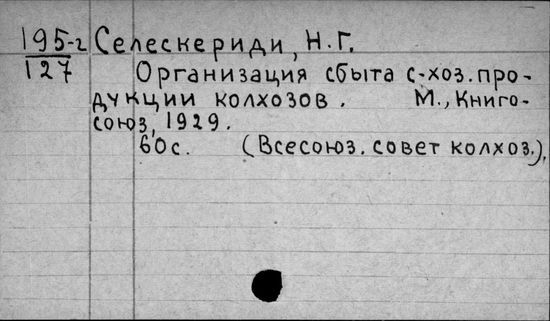 195-г Селескериди, Н.Г.
127 Организация сбыта с-хоз. про-
дукции колхозов. М., Книго-
союз, 1929.
60с. (Всесоюз. совет колхоз.).